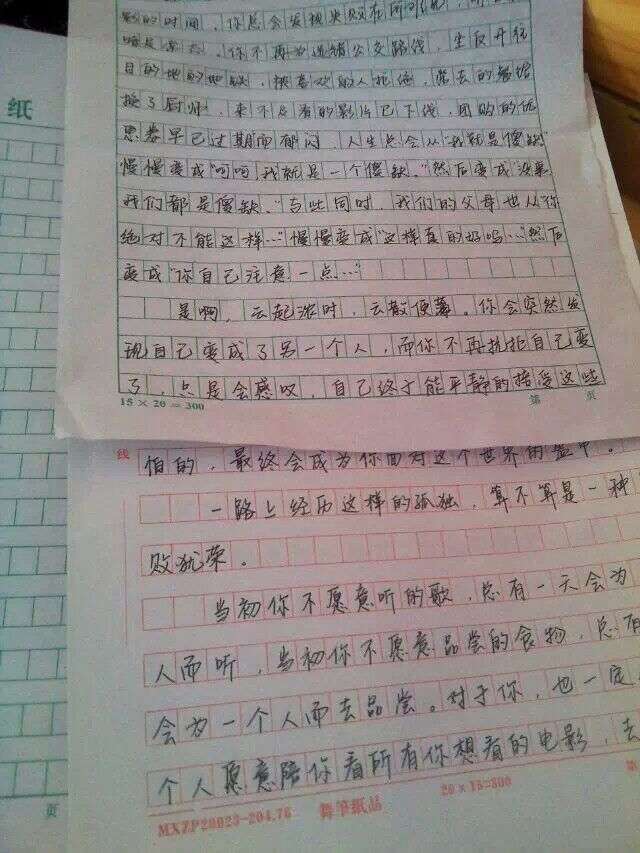 纸
的时间，你总会发现
你不再为选错公交路线，坐反开往
目的地的地铁，被喜欢的人拒绝，常去的餐馆
换了厨师，来不及看的影片已下线，团购的优
惠券早已过期而郁闷，人生总会从“我就是傻缺”
慢慢变成“呵呵，我就是一个傻缺。”然后变成“没事
我们都是傻缺。”与此同时，我们的父母也从“你
绝对不能这样…”慢慢变成“这样真的好吗…”然后
变成“你自己注意一点…”
是啊，云起浓时，云散便薄。你会突然发
现自己变成了另一个人，而你不再抗拒自己变
了，点是会感叹，自己终于能平静的接受这些
15×20=300 第 页
线
怕的，最终会成为你面对这个世界的盔甲。
一路上经历这样的孤独，算不算是一种
败犹荣。
当初你不愿意听的歌，总有一天会为
人而听，当初你不愿意品尝的食物，总有
会为一个人而去品尝。对于你，也一定
个人愿意陪你看所有你想看的电影，去
页 MXZP20023-204.75 舞笔纸品 20×15=300 第